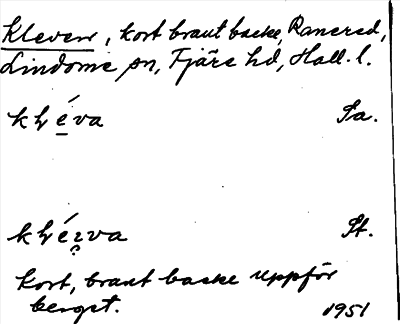 Kleven, kort brant backe, Ranered,
Lindome sn, Fjäre hd, Hall. l.
kléva Sa.
kléva St.
kort, brant backe uppför
berget. 1951